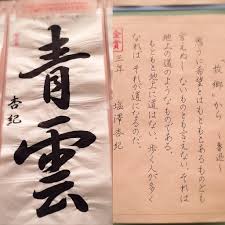 青雲
杏紀
『故郷』から ~魯迅~
思うに希望とはもともとあるものとも
言えぬし、ないものとも言えない。それは
地上の道のようなものである。
もともと地上に道はない。歩く人が多く
なれば、それが道になるのだ。
金賞 三年 堀澤杏紀